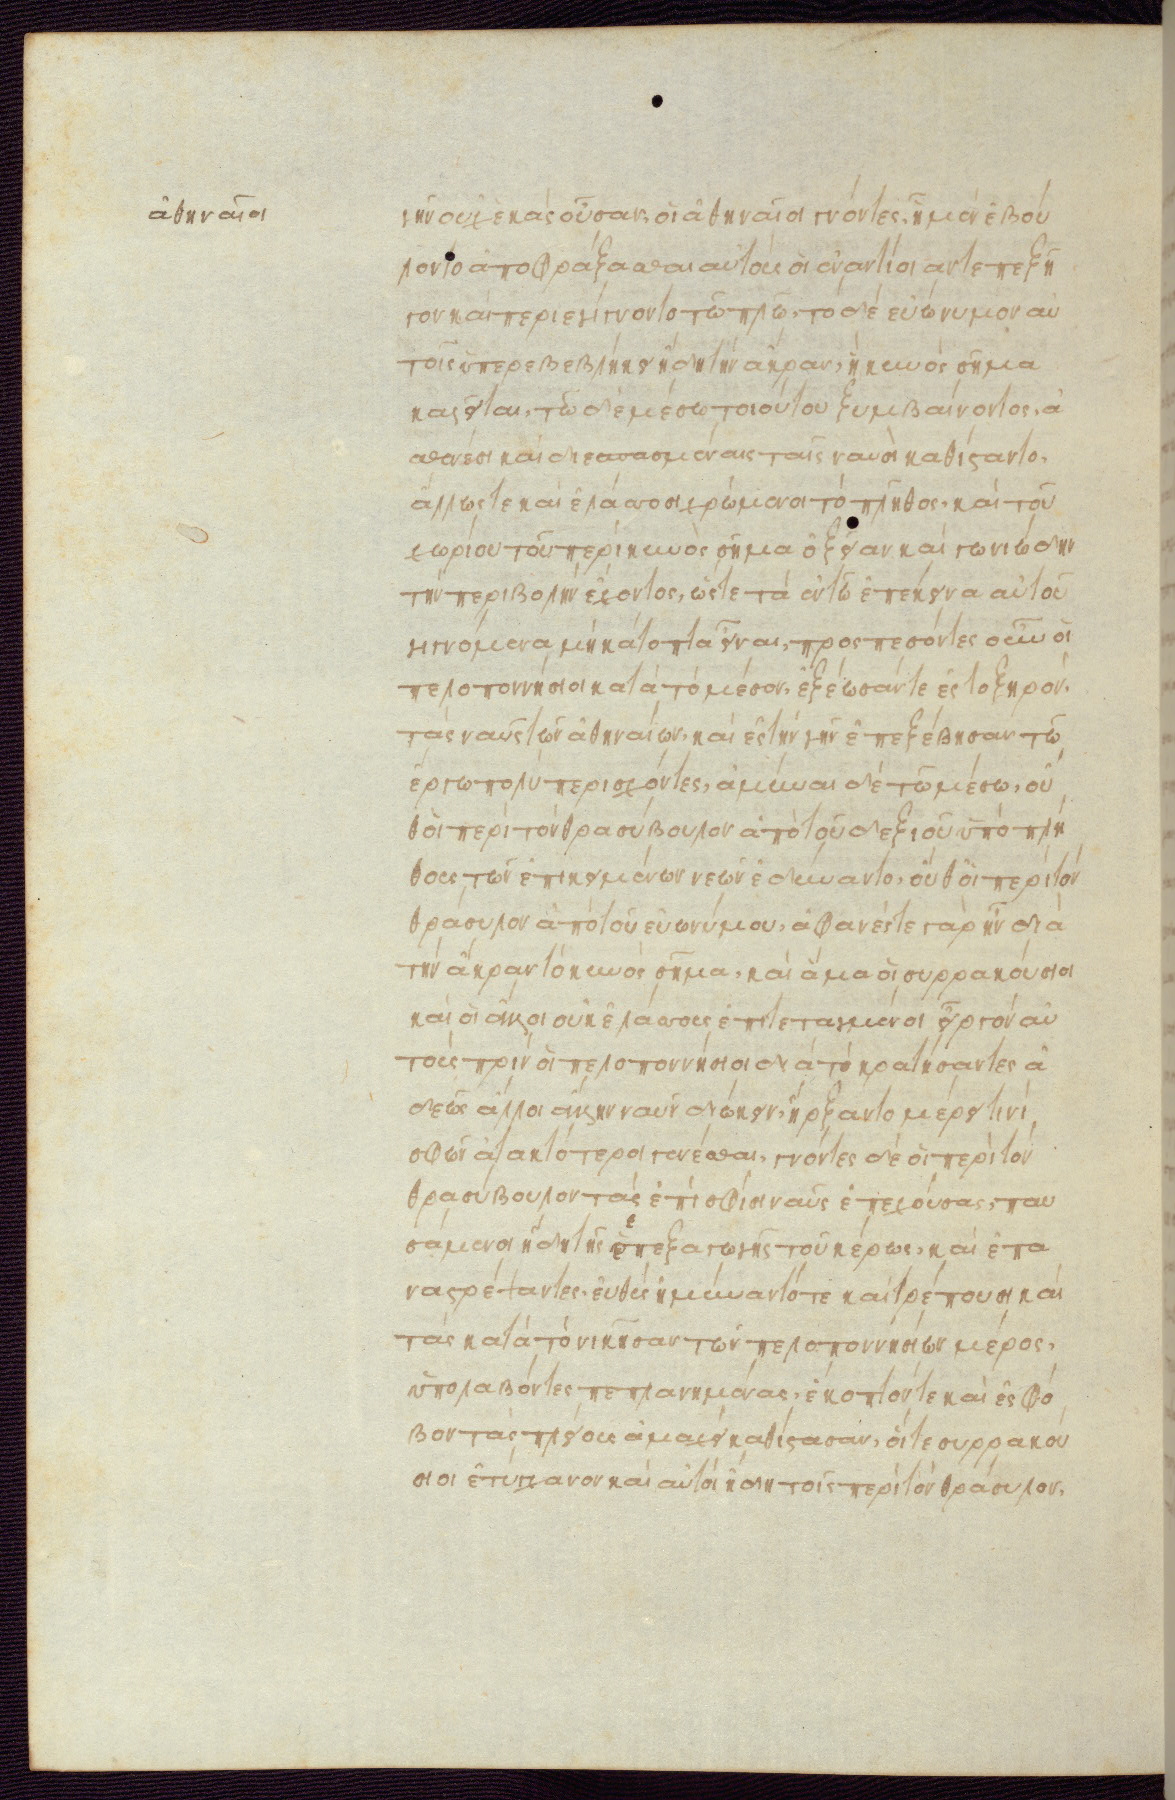 ἀθηναῖοι
γῆν οὐχ ἑκὰς οὖσαν, οἱ ἀθηναῖοι γνόντες, ᾗ μὲν ἐβού
λοντο ἀποφράξασθαι αὐτοὺς οἱ ἐναντίοι αντεπεξῆ
γον καὶ περιεγίγνοντο τῶ πλῶ, το δὲ εὐώνυμον αὐ
τοῖς ὑπερεβεβλήκει ἤδη τὴν ἄκραν, ἣ κυνὸς σῆμα
καλεῖται, τῶ δὲ μέσω τοιούτου ξυμβαίνοντος, ἀ
σθενέσι καὶ διεσπασμέναις ταῖς ναυσὶ καθίσταντο,
ἄλλως τε καὶ ἐλάσσοσι χρώμενοι τὸ πλῆθος, καὶ τοῦ
χωρίου τοῦ περὶ κυνὸς σῆμα ὀξεῖαν καὶ γωνιώδην
τὴν περιβολὴν ἔχοντος, ὥστε τὰ ἐν τῶ ἐπέκεινα αὐτοῦ
γιγνόμενα μὴ κάτοπτα εἶναι, προσπεσόντες οὖν οἱ
πελοποννήσιοι κατὰ τὸ μέσον, ἐξέωσάν τε ἐς το ξηρόν,
τὰς ναῦς τῶν ἀθηναίων, καὶ ἐς τὴν γῆν ἐπεξέβησαν τῶ
ἔργω πολὺ περισχόντες, ἀμῦναι δὲ τῶ μέσω, οὔ
θ οἱ περὶ τὸν θρασύβουλον ἀπὸ τοῦ δεξιοῦ ὑπὸ πλή
θους τῶν ἐπικειμένων νεῶν ἐδύναντο, οὔθ οἱ περὶ τὸν
θράσυλον ἀπὸ τοῦ εὐωνύμου, ἀφανές τε γὰρ ἦν διὰ
τὴν ἄκραν τὸ κυνὸς σῆμα, καὶ ἅμα οἱ συρρακούσιοι
καὶ οἱ ἄλλοι οὐκ ἐλάσσους ἐπιτεταγμένοι εἶργον αὐ
τοὺς πρὶν οἱ πελοποννήσιοι διὰ τὸ κρατήσαντες ἀ
δεῶς ἄλλοι ἄλλην ναῦν διώκειν, ἤρξαντο μέρει τινὶ
σφῶν ἀτακτότεροι γενέσθαι, γνόντες δὲ οἱ περὶ τὸν
θρασύβουλον τὰς ἐπὶ σφίσι ναῦς ἐπεχούσας, παυ
σάμενοι ἤδη τῆς ἐπεξαγωγῆς τοῦ κέρως, καὶ ἐπα
ναστρέψαντες, εὐθὺς ἠμύναντό τε καὶ τρέπουσι καὶ
τὰς κατὰ τὸ νικῆσαν τῶν πελοποννησίων μέρος,
ὑπολαβόντες πεπλανημένας, ἔκοπτόν τε καὶ ἐς φό
βον τὰς πλείους ἀμαχεὶ καθίστασαν, οἵ τε συρρακού
σιοι ἐτύγχανον καὶ αὐτοὶ ἤδη τοῖς περὶ τὸν θράσυλον,